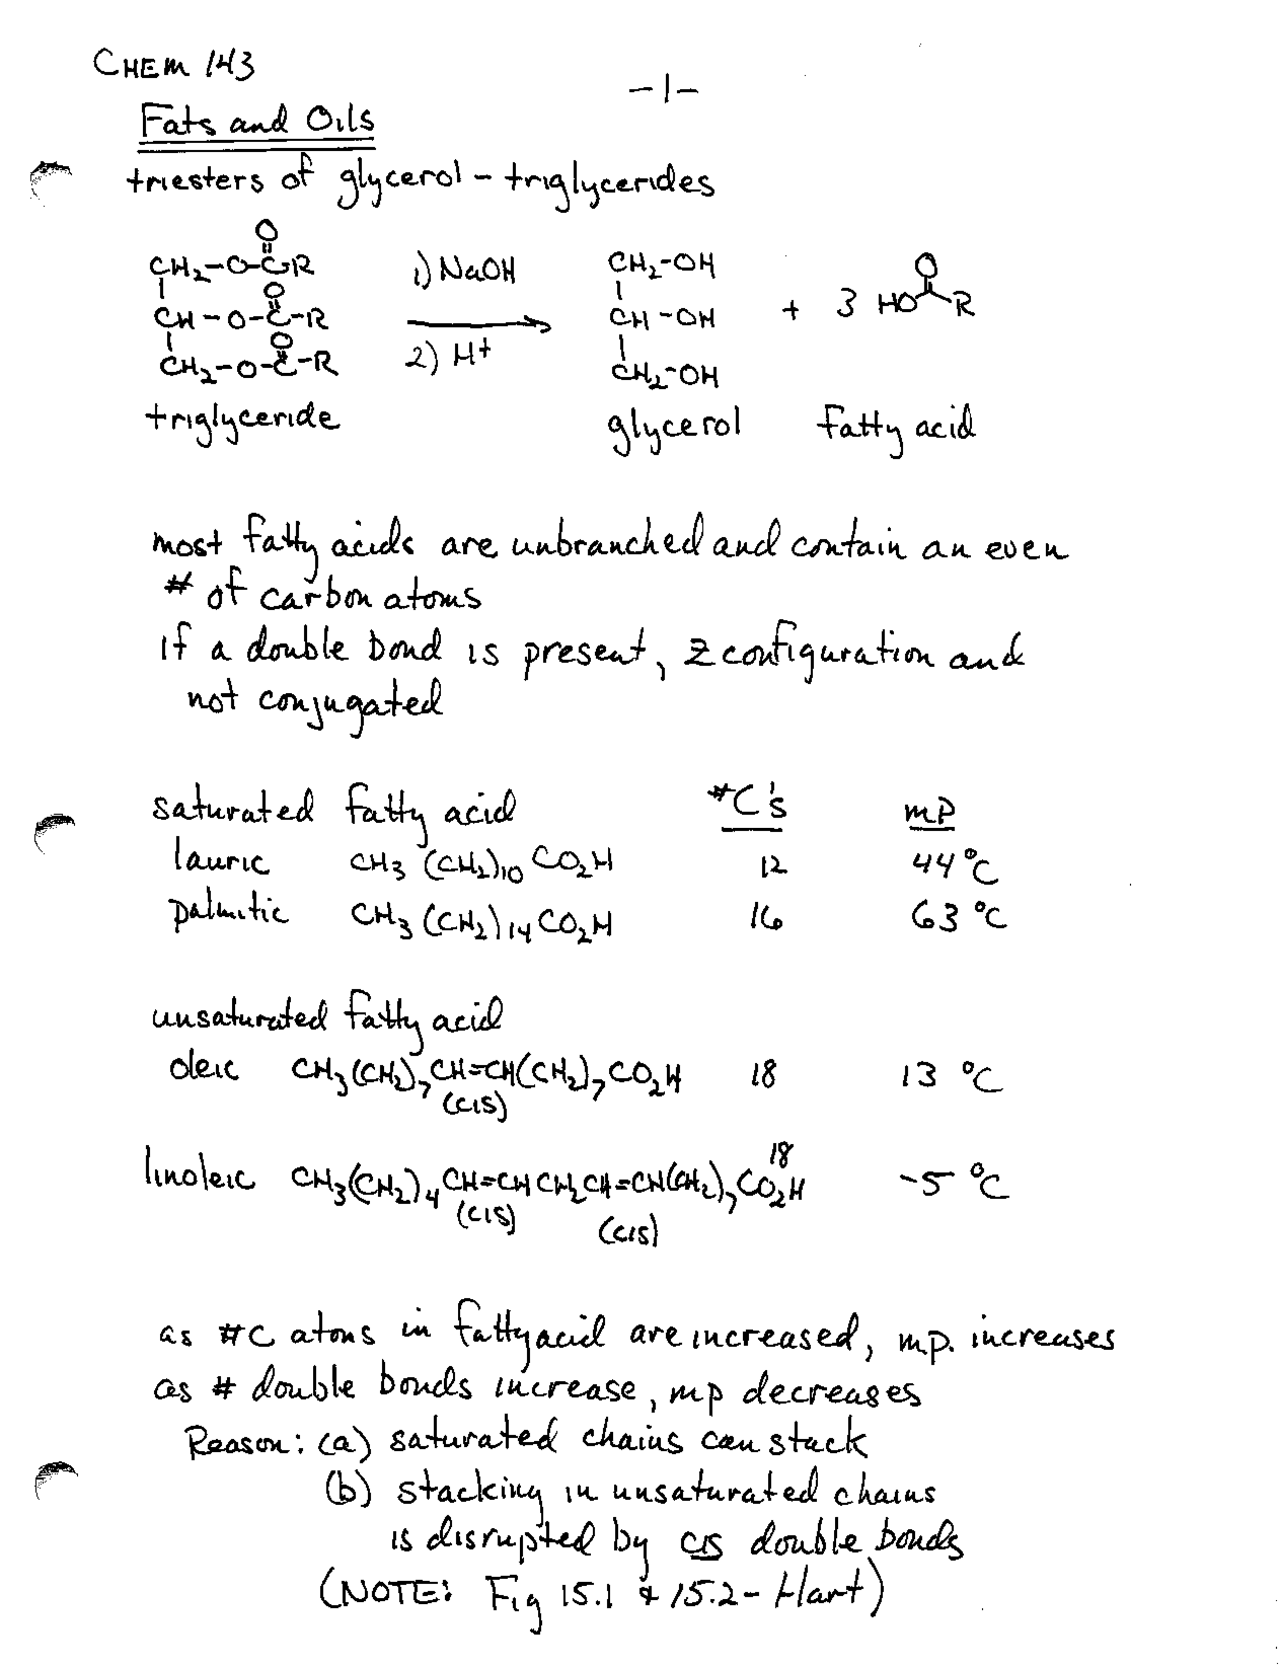 CHEM 143
-1-
Fats and Oils
triesters of glycerol - triglycerides
O
CH2-O-C-R 1) NaOH CH2-OH O
O
CH-O-C-R CH-OH + 3 HO R
O
CH2-O-C-R 2) H+ CH2-OH
triglyceride glycerol fatty acid
most fatty acids are unbranched and contain an even
# of carbon atoms
if a double bond is present, Z configuration and
not conjugated
saturated fatty acid #C's mp
lauric CH3(CH2)10CO2H 12 44°C
palmitic CH3(CH2)14CO2H 16 63°C
unsaturated fatty acid
oleic CH3(CH2)7CH=CH(CH2)7CO2H 18 13°C
(cis)
linoleic CH3(CH2)4CH=CHCH2CH=CH(CH2)7CO2H 18 -5°C
(cis) (cis)
as #C atoms in fatty acid are increased, m.p. increases
as # double bonds increase, mp decreases
Reason: (a) saturated chains can stack
(b) stacking in unsaturated chains
is disrupted by cis double bonds
(NOTE: Fig 15.1 & 15.2 - Hart)